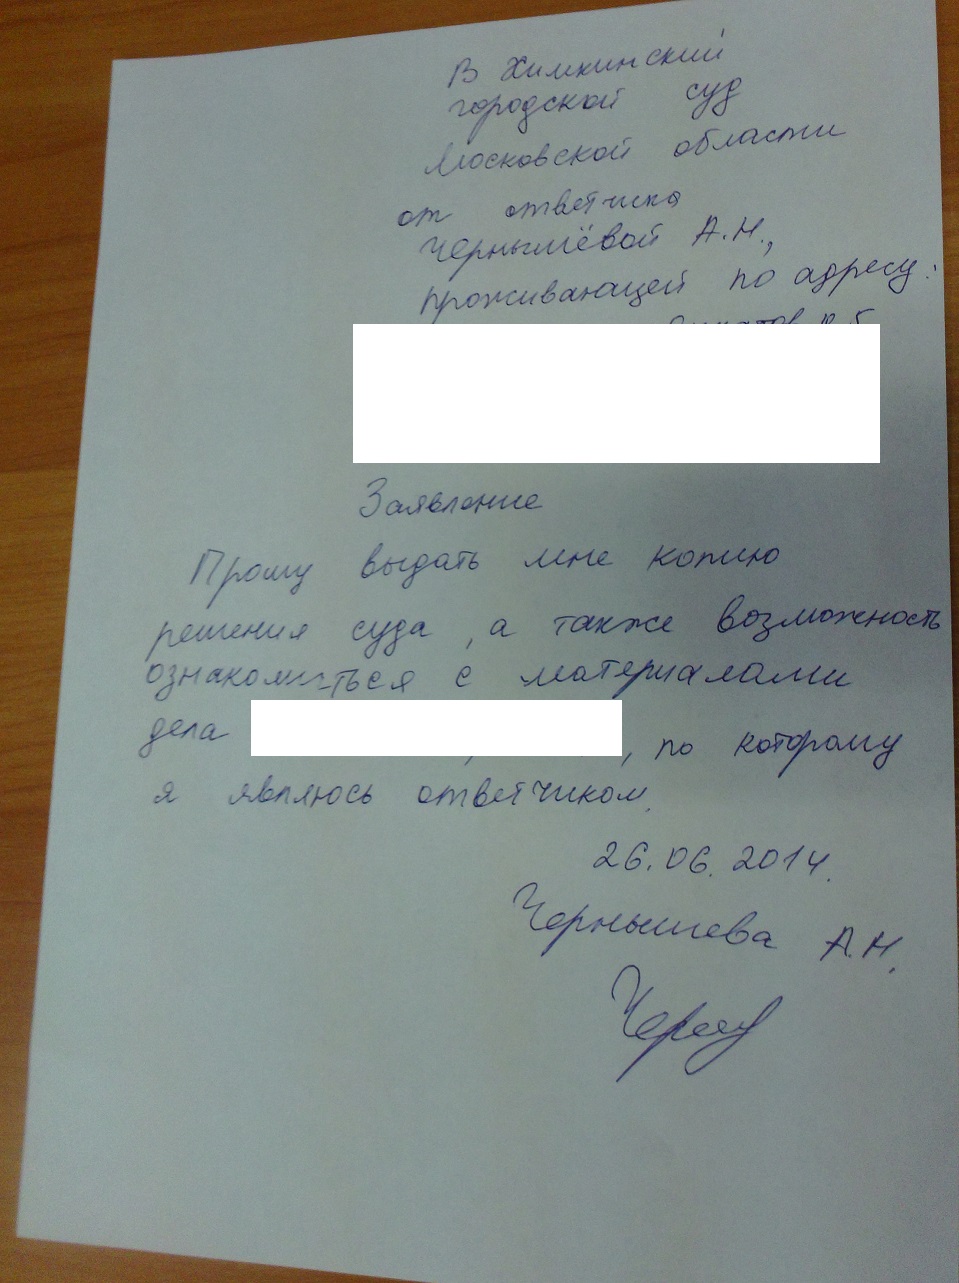 В Химкинский
городской суд
Московской области
от ответчика
Чернышёвой А.Н.,
проживающей по адресу:
Заявление
Прошу выдать мне копию
решения суда, а также возможность
ознакомиться с материалами
дела , по которому
я являюсь ответчиком.
26.06.2014.
Чернышева А.Н.